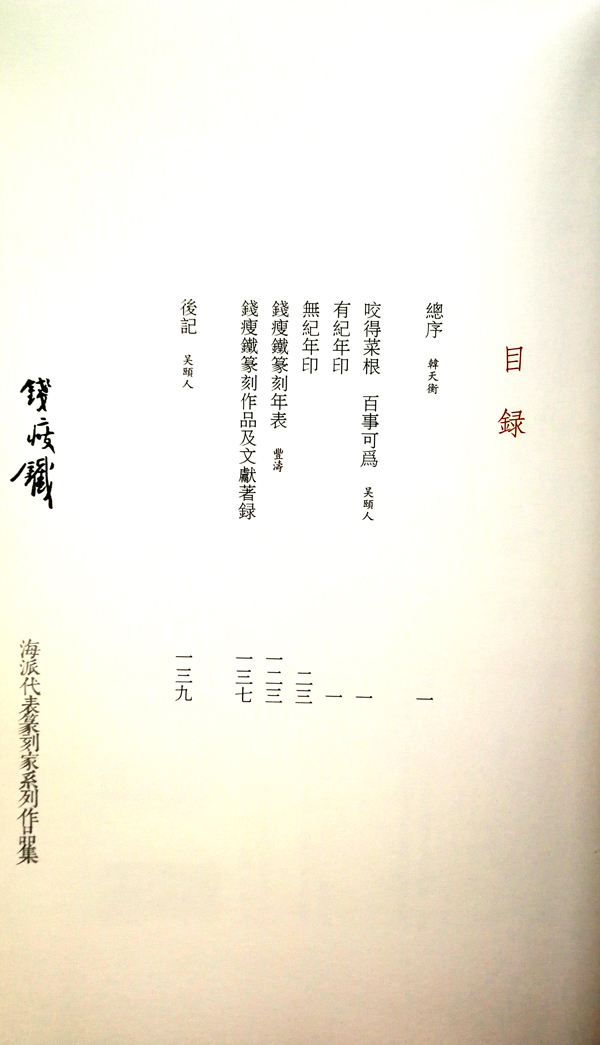 目録
總序 韓天衡 一
咬得菜根 百事可爲 吴頤人 一
有紀年印 一
無紀年印 二三
錢瘦鐵篆刻年表 豐濤 一二三
錢瘦鐵篆刻作品及文獻著録 一三七
後記 吴頤人 一三九
錢瘦鐵
海派代表篆刻家系列作品集